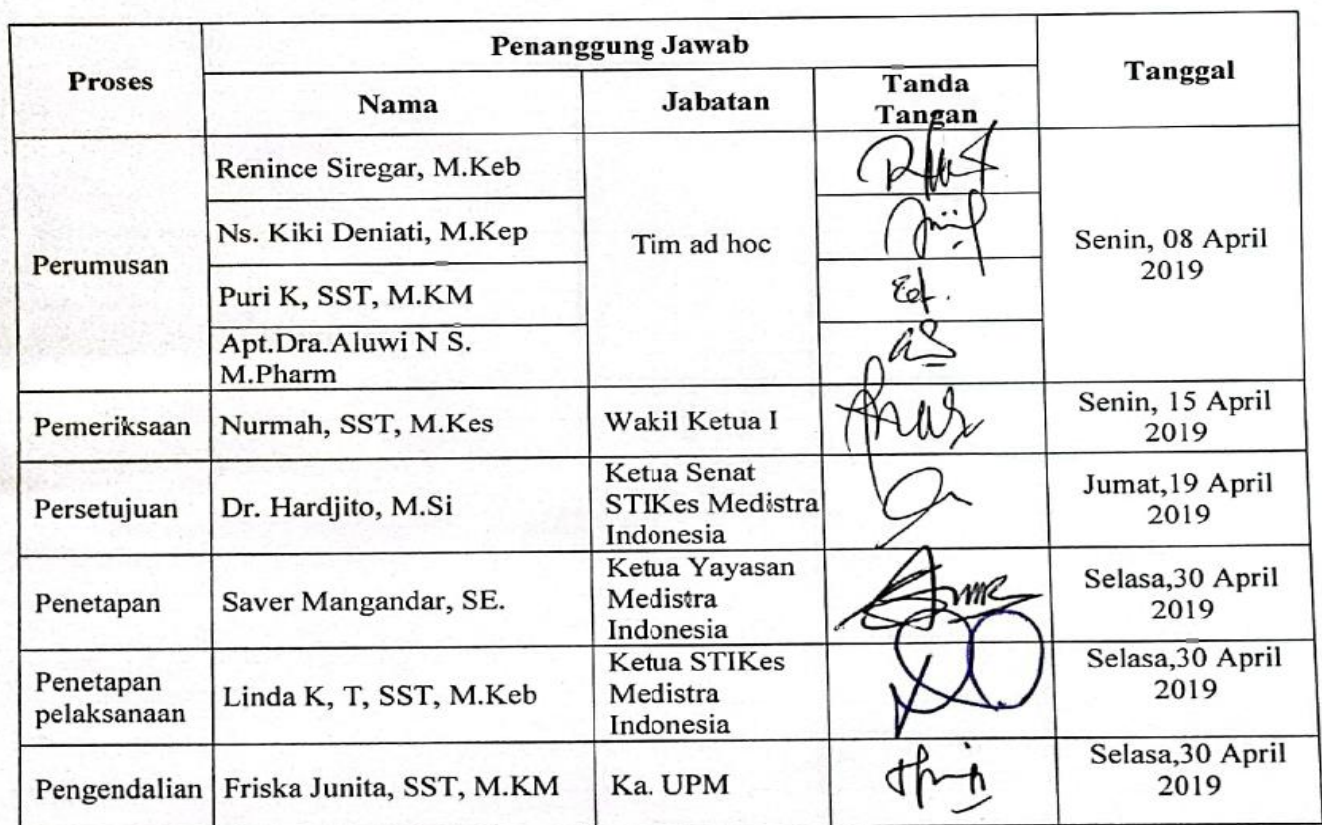 Proses
Penanggung Jawab
Tanggal
Nama
Jabatan
Tanda
Tangan
Perumusan
Renince Siregar, M.Keb
Ns. Kiki Deniati, M.Kep
Puri K, SST, M.KM
Apt.Dra.Aluwi N S.
M.Pharm
Tim ad hoc
Senin, 08 April
2019
Pemeriksaan
Nurmah, SST, M.Kes
Wakil Ketua I
Senin, 15 April
2019
Persetujuan
Dr. Hardjito, M.Si
Ketua Senat
STIKes Medistra
Indonesia
Jumat,19 April
2019
Penetapan
Saver Mangandar, SE.
Ketua Yayasan
Medistra
Indonesia
Selasa,30 April
2019
Penetapan
pelaksanaan
Linda K, T, SST, M.Keb
Ketua STIKes
Medistra
Indonesia
Selasa,30 April
2019
Pengendalian
Friska Junita, SST, M.KM
Ka. UPM
Selasa,30 April
2019